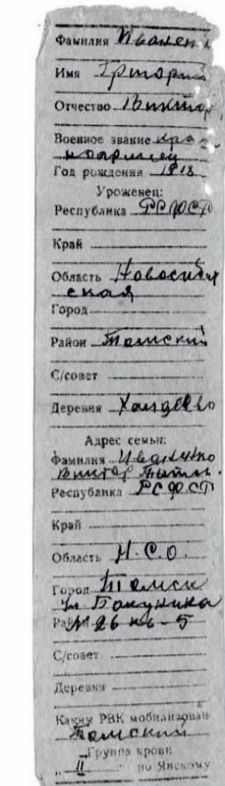 Фамилия Иванен
Имя Григорий
Отчество Виктор
Военное звание крас
ноармеец
Год рождения 1918
Уроженец:
Республика РСФСР
Край
Область Новосибир
ская
Город
Район Томский
С/совет
Деревня Халдеево
Адрес семьи:
Фамилия
Виктор
Республика РСФСР
Край
Область Н.С.О.
Город Томск
ул. Бакунина
Район № 26 кв-5
С/совет
Деревня
Каким РВК мобилизован
Томский
Группа крови
„ II по Янскому